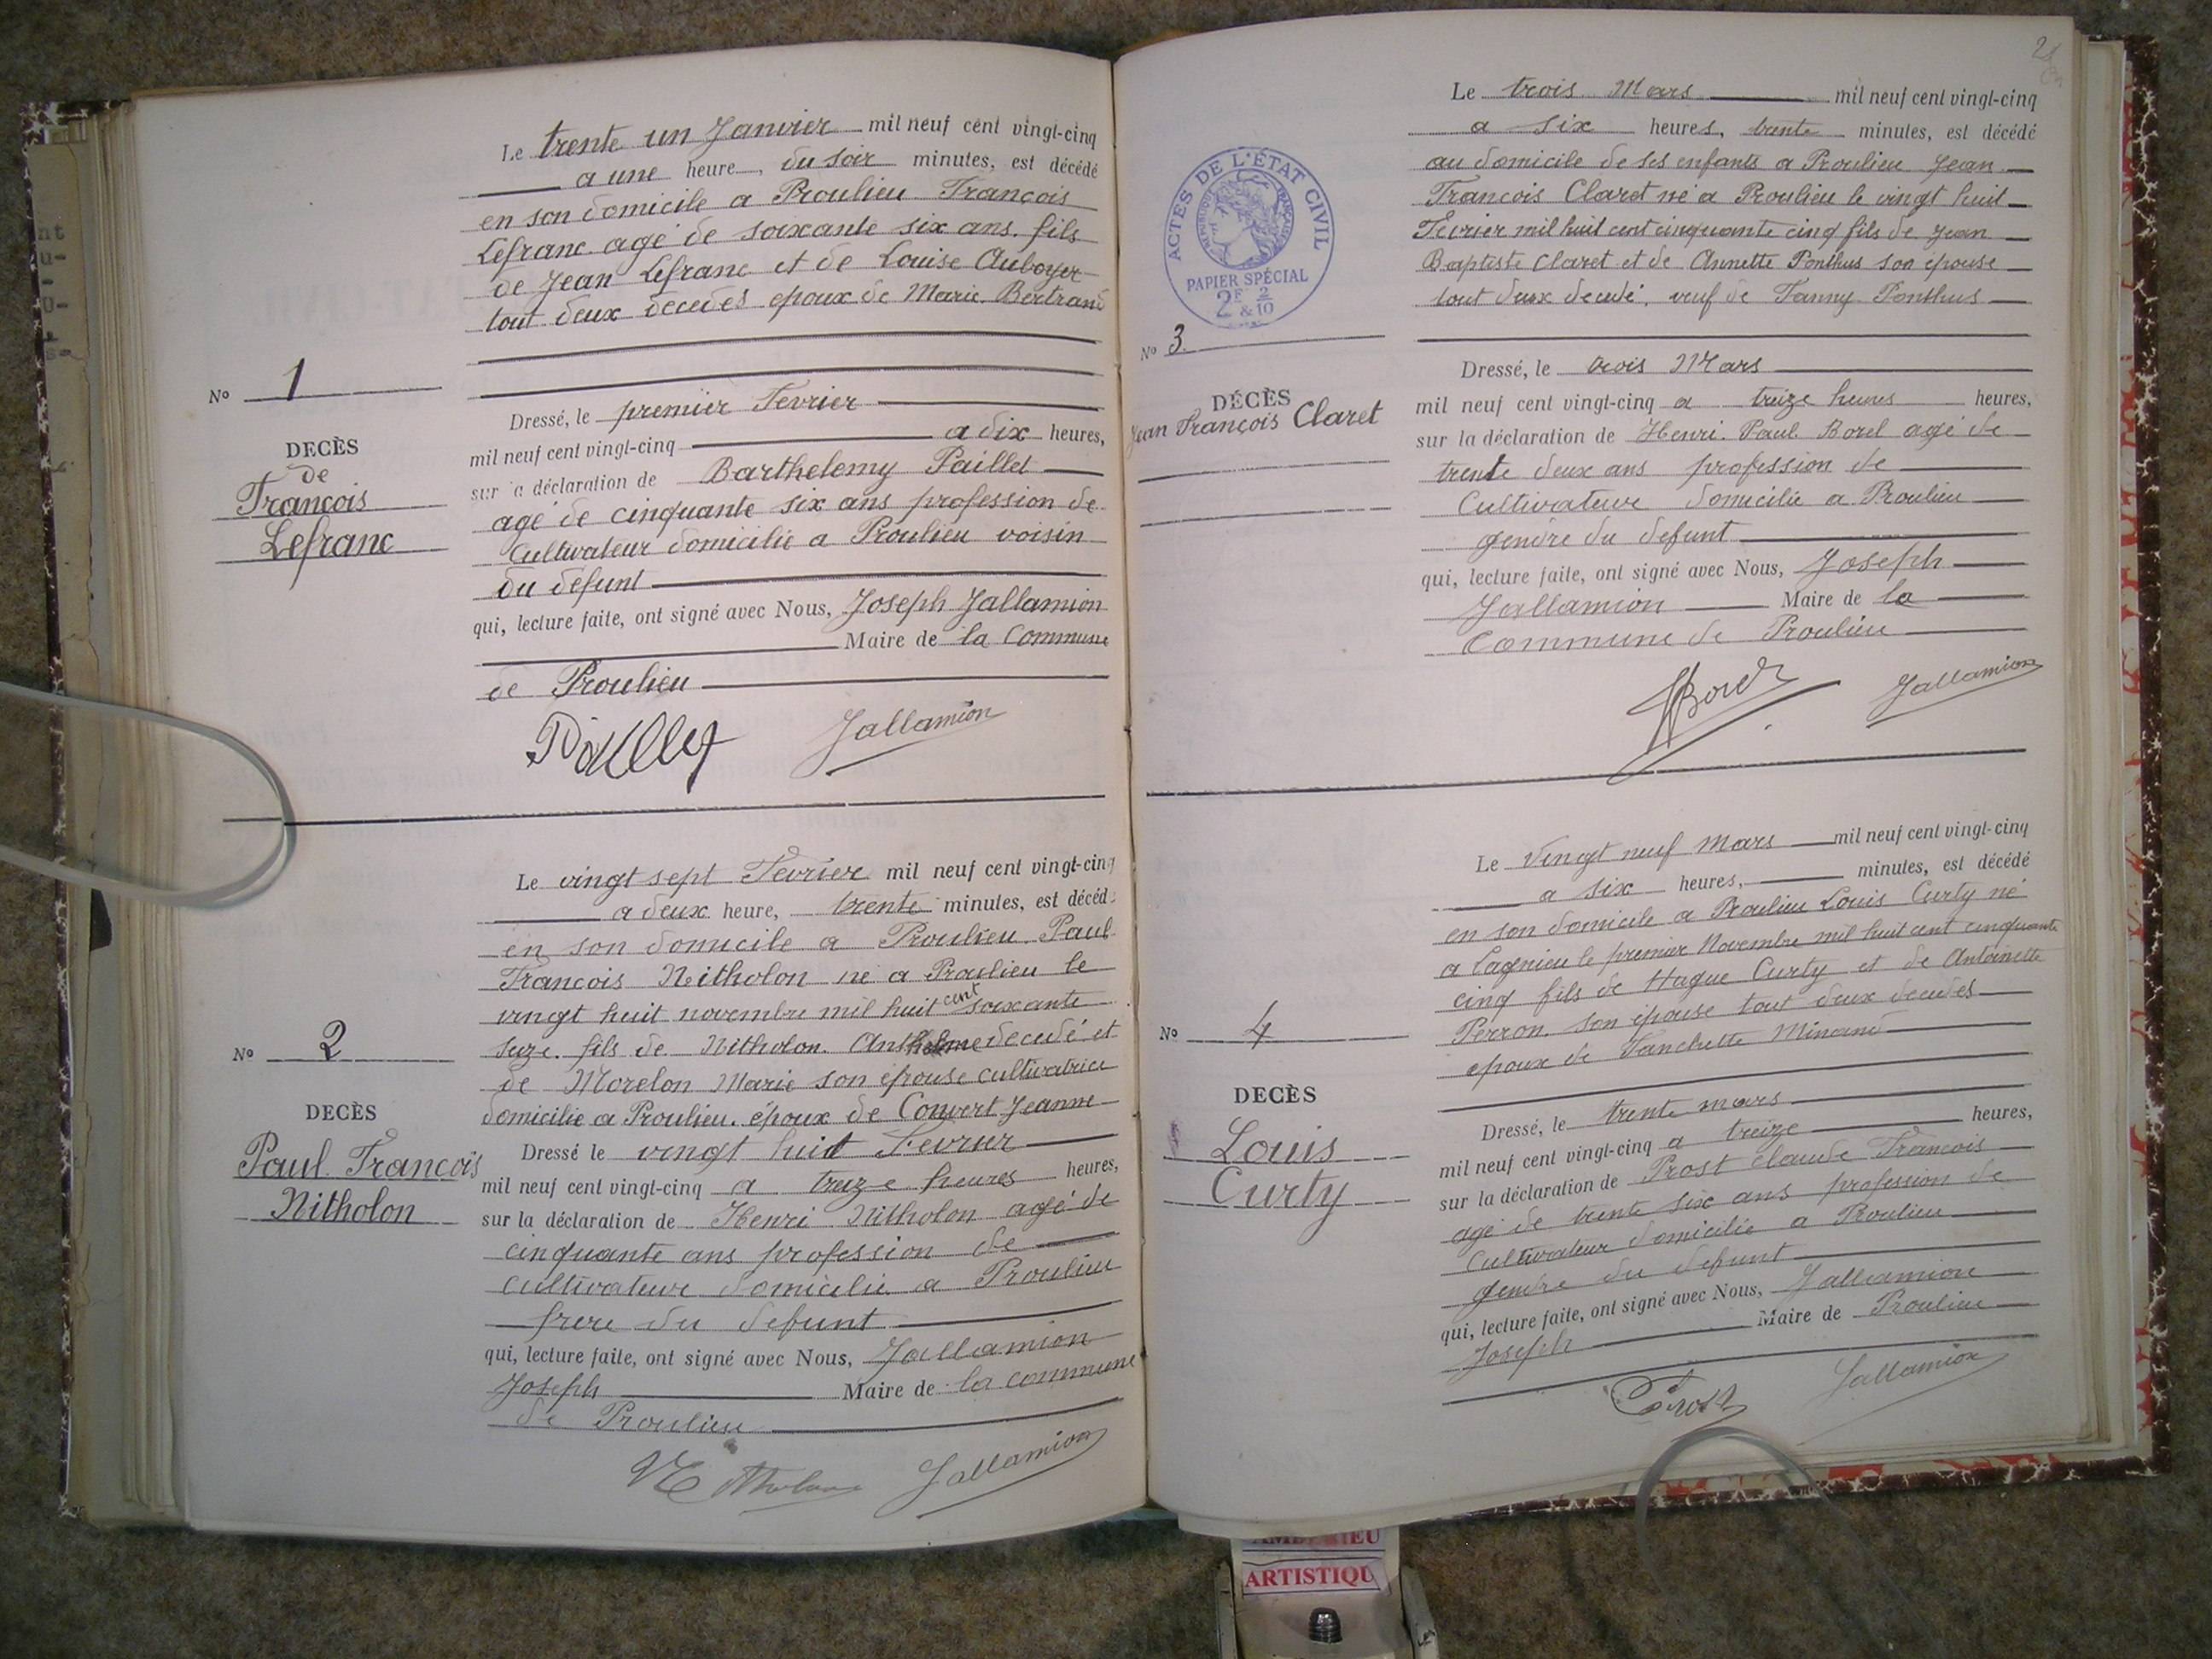 Le trente un Janvier mil neuf cent vingt-cinq
a une heure, du soir minutes, est décédé
en son domicile a Proulieu François
Lefranc agé de soixante six ans. fils
de Jean Lefranc et de Louise Auboyer
tout deux decedes epoux de Marie Bertrand
No 1
DECÈS
de
François
Lefranc
Dressé, le premier Fevrier
mil neuf cent vingt-cinq a dix heures,
sur la déclaration de Barthelemy Paillet
agé de cinquante six ans profession de
Cultivateur domicilié a Proulieu voisin
du défunt
qui, lecture faite, ont signé avec Nous, Joseph Jallamion
Maire de la Commune
de Proulieu
Jallamion
Le vingt sept Fevrier mil neuf cent vingt-cinq
a deux heure, trente minutes, est décédé
en son domicile a Proulieu Paul
François Nitholon né a Proulieu le
vingt huit novembre mil huit cent soixante
seize. fils de Nitholon. Anthelme decedé et
de Morelon Marie son épouse cultivatrice
domicilié a Proulieu. époux de Convert Jeanne
No 2
DECÈS
Paul François
Nitholon
Dressé le vingt huit Fevrier
mil neuf cent vingt-cinq a treize heures heures,
sur la déclaration de Henri Nitholon agé de
cinquante ans profession de
cultivateur domicilié a Proulieu
frere du défunt
qui, lecture faite, ont signé avec Nous, Jallamion
Joseph Maire de la commune
de Proulieu
Jallamion
Le trois Mars mil neuf cent vingt-cinq
a six heures, trente minutes, est décédé
au domicile de ses enfants a Proulieu Jean
François Claret né a Proulieu le vingt huit
Fevrier mil huit cent cinquante cinq fils de Jean
Baptiste Claret et de Annette Ponthus son épouse
tout deux decedé. veuf de Fanny Ponthus
ACTES DE L'ÉTAT CIVIL
RÉPUBLIQUE FRANÇAISE
PAPIER SPÉCIAL
2F & 2/10
No 3.
DÉCÈS
Jean François Claret
Dressé, le trois Mars
mil neuf cent vingt-cinq a treize heures heures,
sur la déclaration de Henri Paul Borel agé de
trente deux ans profession de
Cultivateur domicilié a Proulieu
gendre du defunt
qui, lecture faite, ont signé avec Nous, Joseph
Jallamion Maire de la
Commune de Proulieu
HBorel Jallamion
Le Vingt neuf mars mil neuf cent vingt-cinq
a six heures, minutes, est décédé
en son domicile a Proulieu Louis Curty né
a Lagnieu le premier Novembre mil huit cent cinquante
cinq fils de Hugue Curty et de Antoinette
Perron son épouse tout deux decedes
epoux de Fanchette Minand
No 4
DECÈS
Louis
Curty
Dressé, le trente mars
mil neuf cent vingt-cinq a treize heures,
sur la déclaration de Prost Claude François
agé de trente six ans profession de
Cultivateur domicilié a Proulieu
gendre du defunt
qui, lecture faite, ont signé avec Nous, Jallamion
Joseph Maire de Proulieu
Prost Jallamion
ARTISTIQU